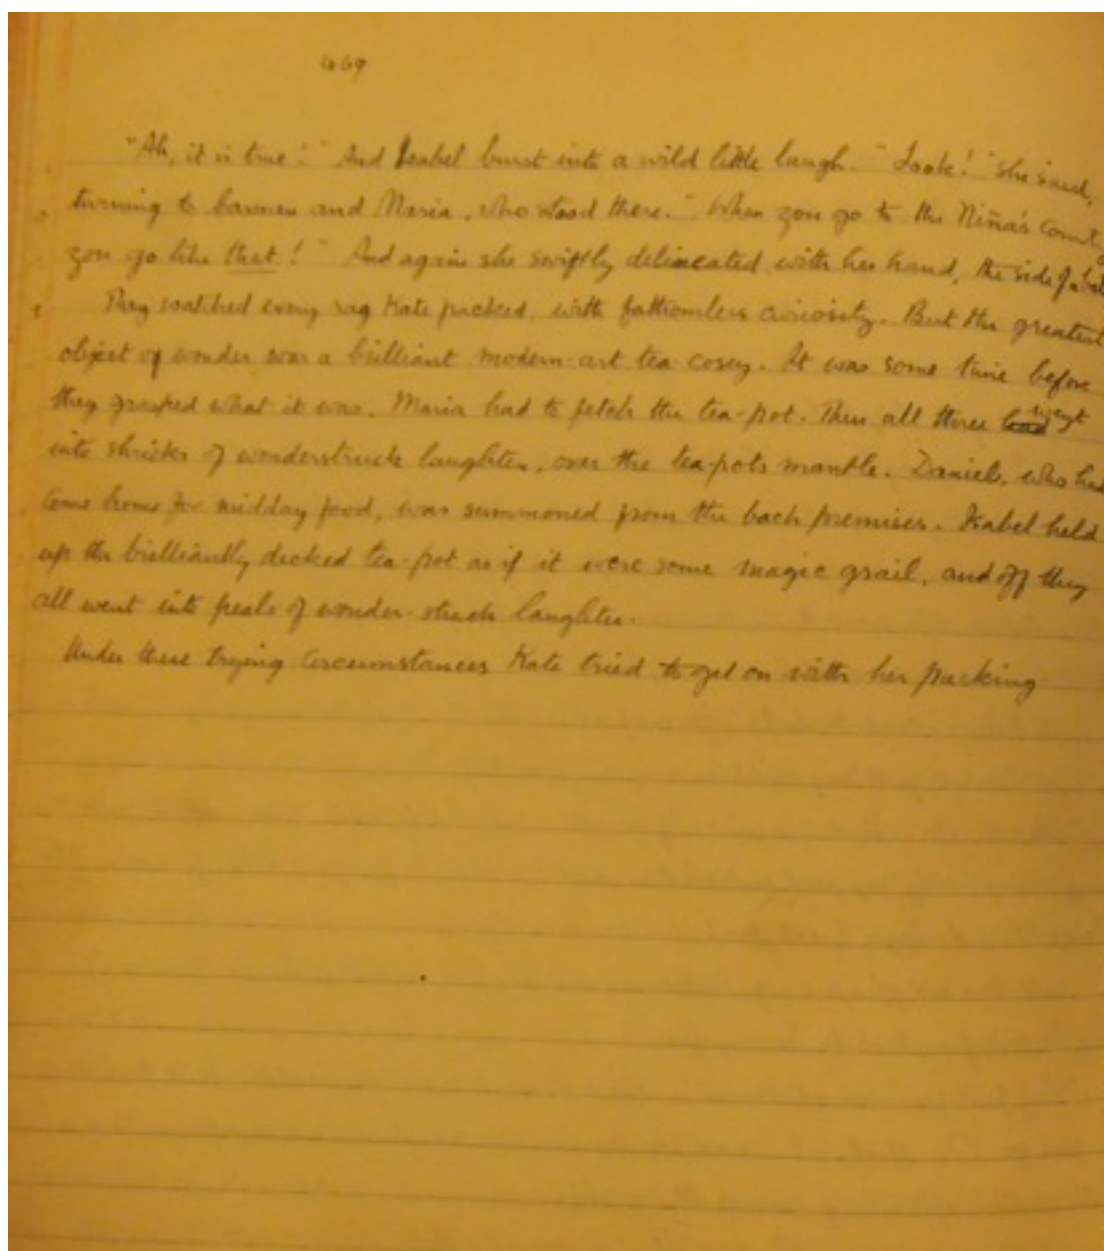 469
"Ah, it is true!" And Isabel burst into a wild little laugh. "Look!" she said,
turning to Carmen and Maria, who stood there. "When you go to the Niña's country
you go like that!" And again she swiftly delineated, with her hand, the side of a ball
They watched every rag Kate packed, with fathomless curiosity. But the greatest
object of wonder was a brilliant modern-art tea-cosey. It was some time before
they grasped what it was. Maria had to fetch the tea-pot. Then all three went
into shrieks of wonderstruck laughter, over the tea-pots mantle. Daniel, who had
come home for midday food, was summoned from the back premises. Isabel held
up the brilliantly decked tea-pot as if it were some magic grail, and off they
all went into peals of wonder-struck laughter.
Under these trying circumstances Kate tried to get on with her packing